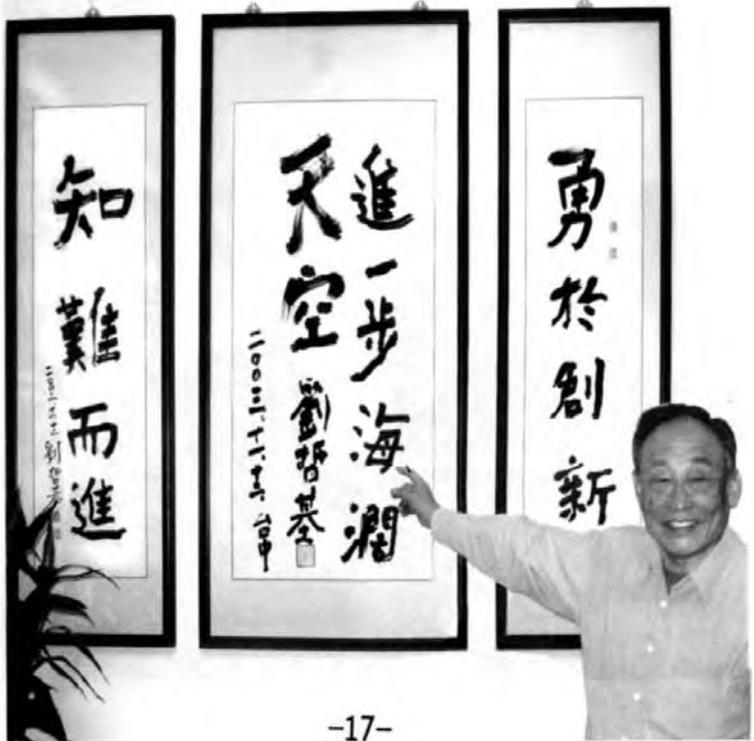 勇於創新
進一步海濶
天空
劉哲基
二00三、十一、十六、台中
知難而進
-17-